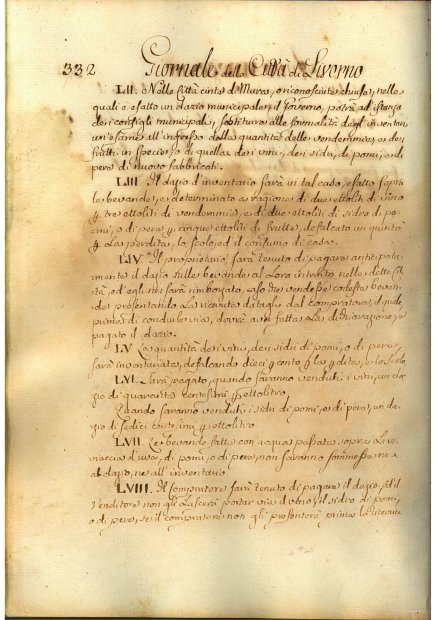 332 Giornale della Città di Livorno
LII. Nelle Città cinte di Mura, o riconosciute chiuse, nelle
quali è esatto un dazio municipale, il Governo, potrà ad istanza
dei consigli municipali, sostituire alle formalità degl'inventari
un'esame all'ingresso della quantità delle vendemmie, e dei
frutti in specie, e di quella dei vini, dei sidri, di pomi, e di
pere di nuovo fabbricati.
LIII. Il dazio d'inventario sarà in tal caso esatto sopra
le bevande, e determinato a ragione di due ettolitri di vino
p tre ettolitri di vendemmia, e di due ettolitri di sidro di po-
mi, o di pere p cinque ettolitri di frutta, defalcato un quinto
p la perdita, lo scolo, ed il consumo di casa.
LIV. Il proprietario, sarà tenuto di pagare anticipata-
mente il dazio sulle bevande al loro introito nelle dette Cit-
tà, ed egli ne sarà rimborsato, caso che vendesse codeste bevan-
de presentando la ricevuta datagli dal compratore, il quale
prima di condurle via, dovrà aver fatta la dichiarazione, e
pagato il dazio.
LV. La quantità dei vini, dei sidri di pomi, o di pere,
sarà inventariata, defalcando dieci p cento p la perdita, e lo scolo.
LVI. Sarà pagato, quando saranno venduti i vini, un da-
zio di quaranta centesimi p ettolitro.
Quando saranno venduti i sidri di pomi, e di pere, un da-
zio di sedici centesimi p ettolitro
LVII. Le bevande fatte con acqua passata sopra la vi-
naccia d'uva, di pomi, o di pere, non saranno sommesse ne
al dazio, ne all'inventario.
LVIII. Il compratore sarà tenuto di pagare il dazio, ed il
venditore non gli lascerà portar via il vino, il sidro di pomi,
o di pere, se il compratore non gli presenterà prima la ricevuta